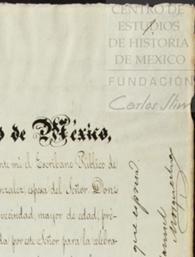 CENTRO DE
ESTUDIOS
DE HISTORIA
DE MEXICO
FUNDACIÓN
Carlos Slim
o de México,
nte mí el Escribano Público de
onzalez, esposa del Señor Don
vecindad, mayor de edad, pre
da por este Señor para la celebra
que expresa
Manuel